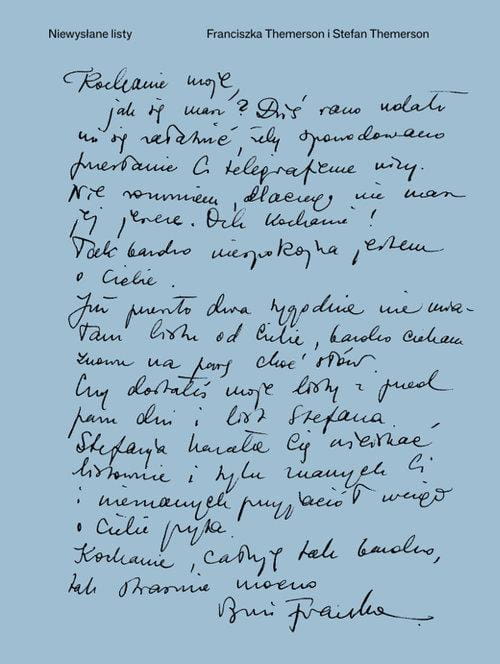 Niewysłane listy
Franciszka Themerson i Stefan Themerson
Kochanie moje,
jak się masz? Dziś rano udało
mi się załatwić, żeby spowodowano
przesłanie Ci telegraficznie wizy.
Nie rozumiem, dlaczego nie masz
jej jeszcze. Och Kochanie!
Tak bardzo niespokojna jestem
o Ciebie.
Już prawie dwa tygodnie nie mia-
łam listu od Ciebie, bardzo czekam
znowu na parę choć słów.
Czy dostałeś moje listy z przed
paru dni i list Stefana.
Stefania kazała Cię uściskać
listownie i tylu znanych Ci
i nieznanych przyjaciół wciąż
o Ciebie pyta.
Kochanie, całuję tak bardzo,
tak strasznie mocno
Franciszka.